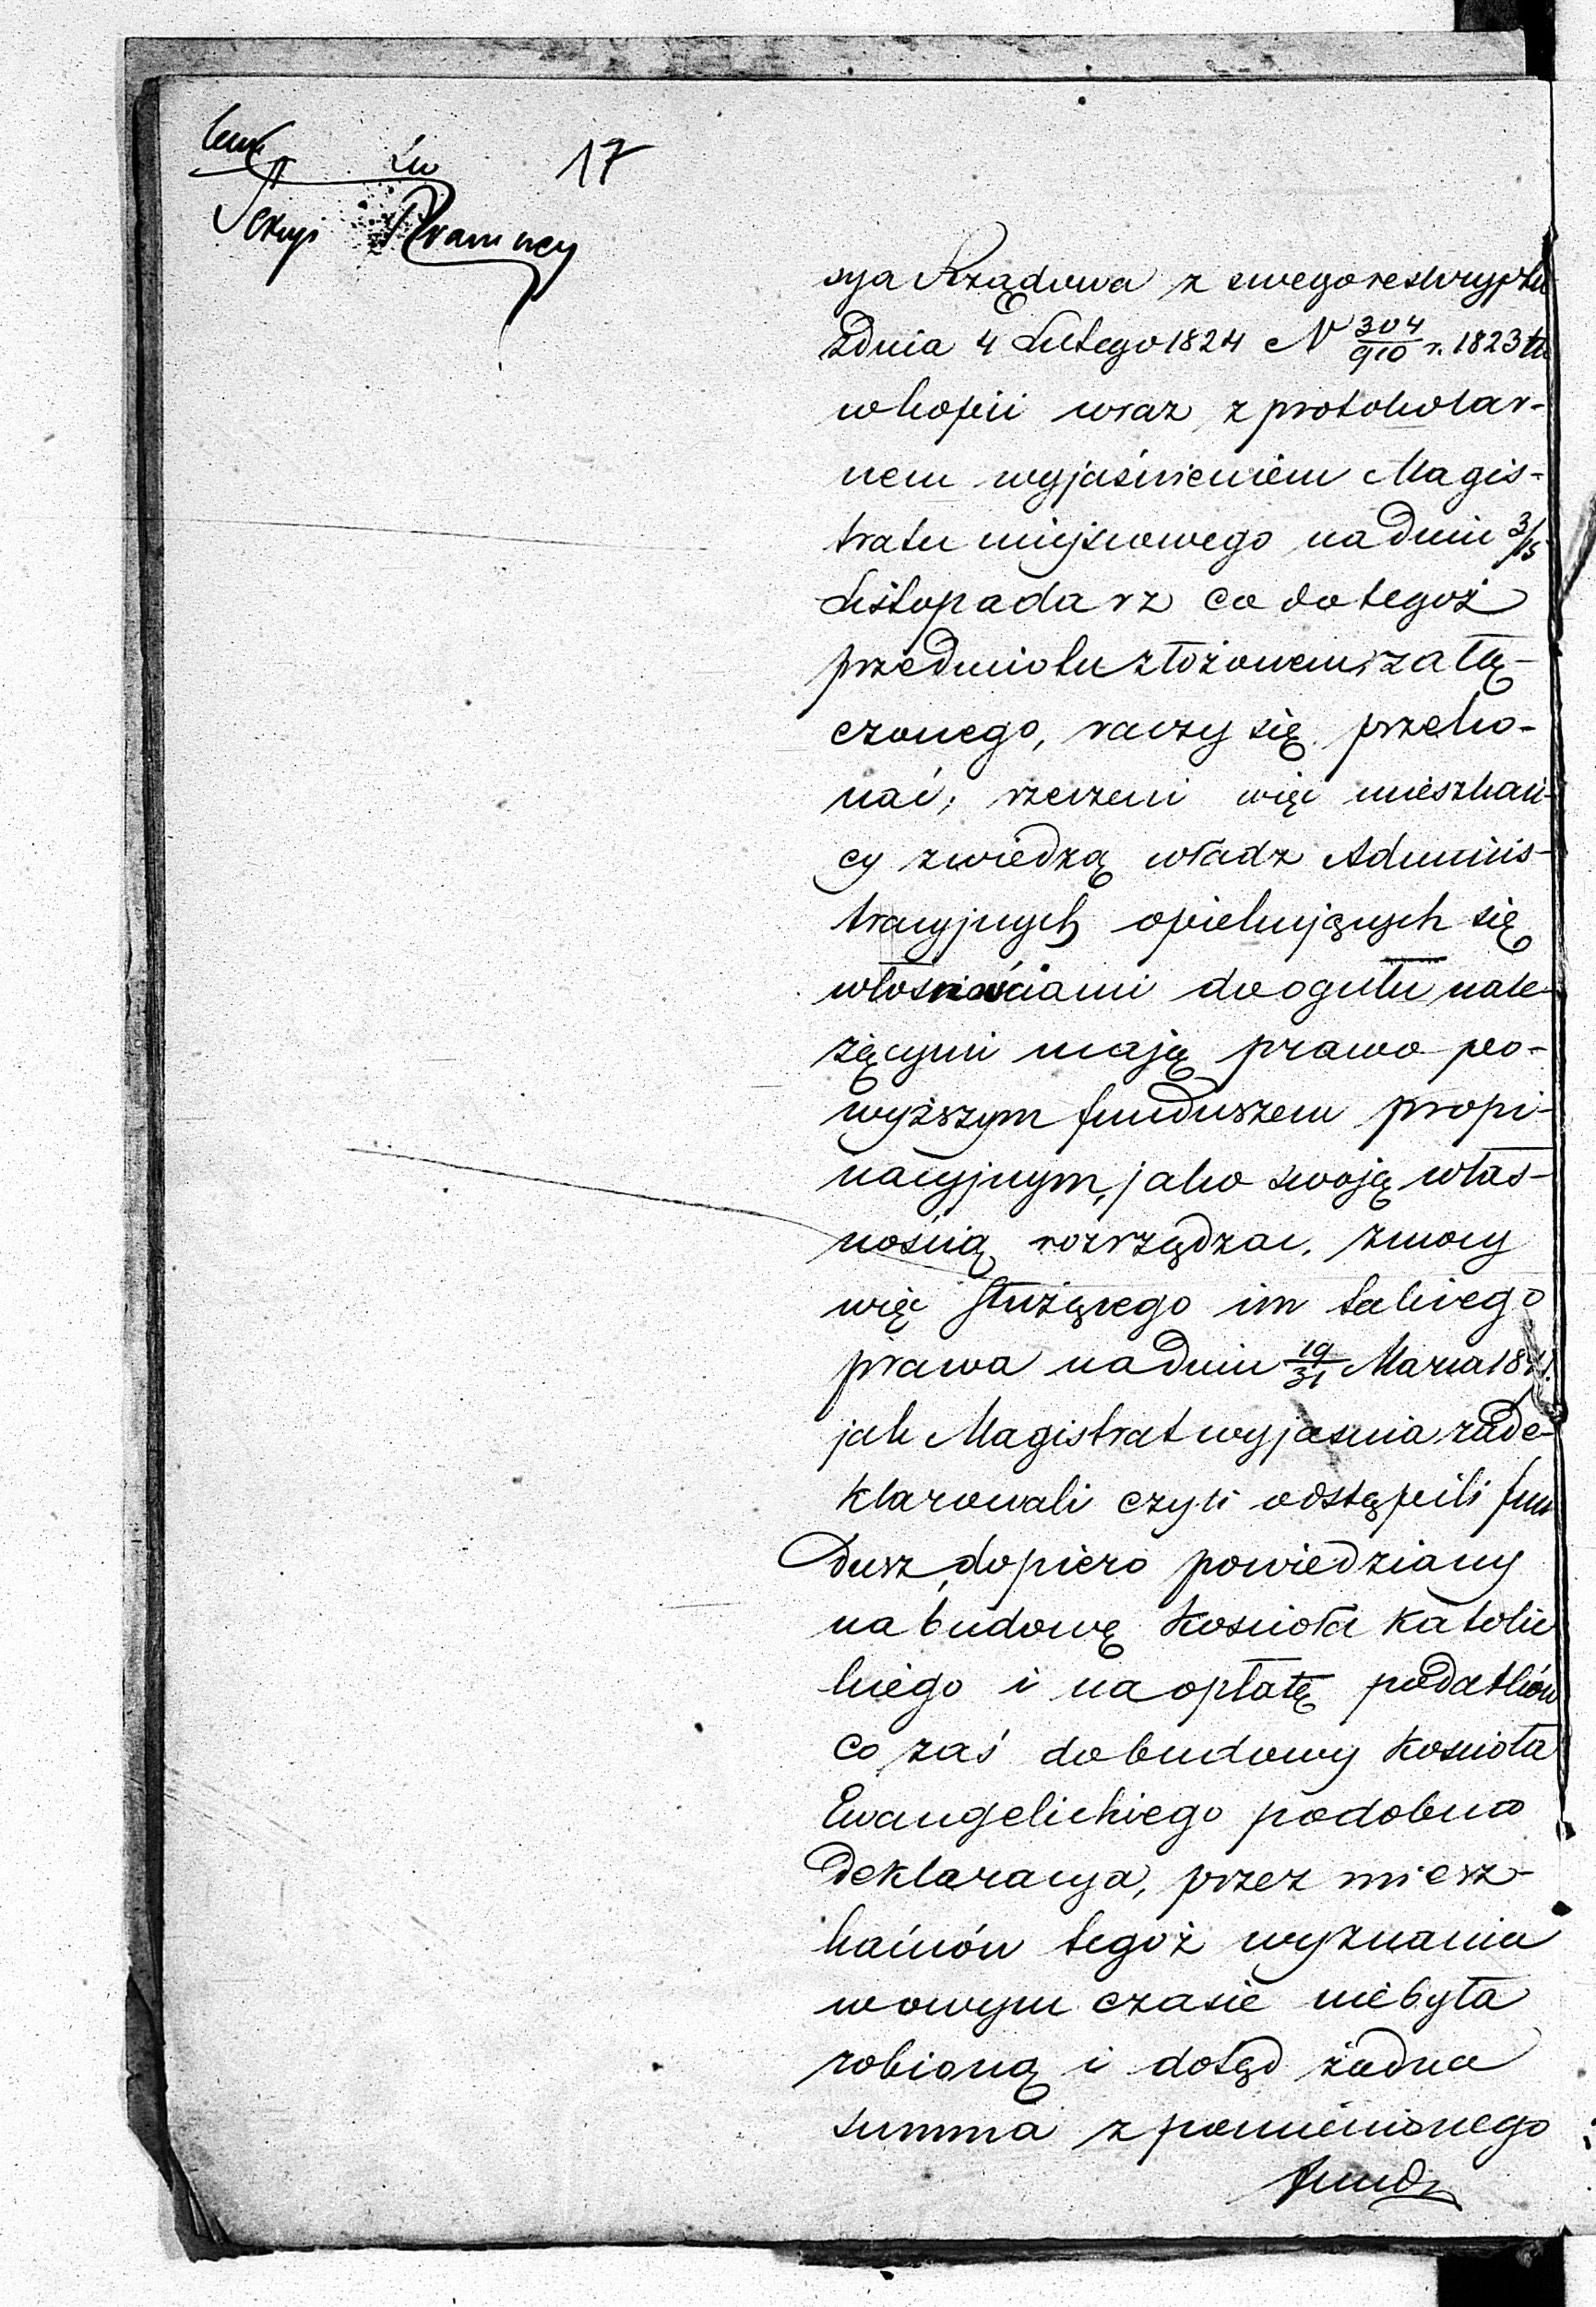 17
Sekcyi Prawney
sya Rządowa z swego reskryptu
zdnia 4 Lutego 1824 N 304/910 r. 1823 tu
w kopii wraz z protokolar-
nem wyjaśnieniem Magis-
tratu miejscowego na dniu 3/15
Listopada rz co do tegoż
przedmiotu złożonem, załą-
czonego, raczy się przeko-
nać; rzeczeni więc mieszkań-
cy z wiedzą władz Adminis-
tracyjnych opiekujących się
własnościami do ogułu nale-
żącymi mają prawo po-
wyższym funduszem propi-
nacyjnym, jako swoją włas-
nością rozrządzać. Z mocy
więc służącego im takiego
prawa na dniu 19/31 Marca
jak Magistrat wyjaśnia zade-
klarowali czyli odstąpili fun
dusz dopiero powiedziany
na budowę Kościoła Katolic
kiego i na opłatę podatków
co zaś do budowy Kościoła
Ewangelickiego podobna
Deklaracya, przez miesz-
kańców tegoż wyznania
w owym czasie niebyła
robioną i dotąd żadna
summa z pomienionego
fund